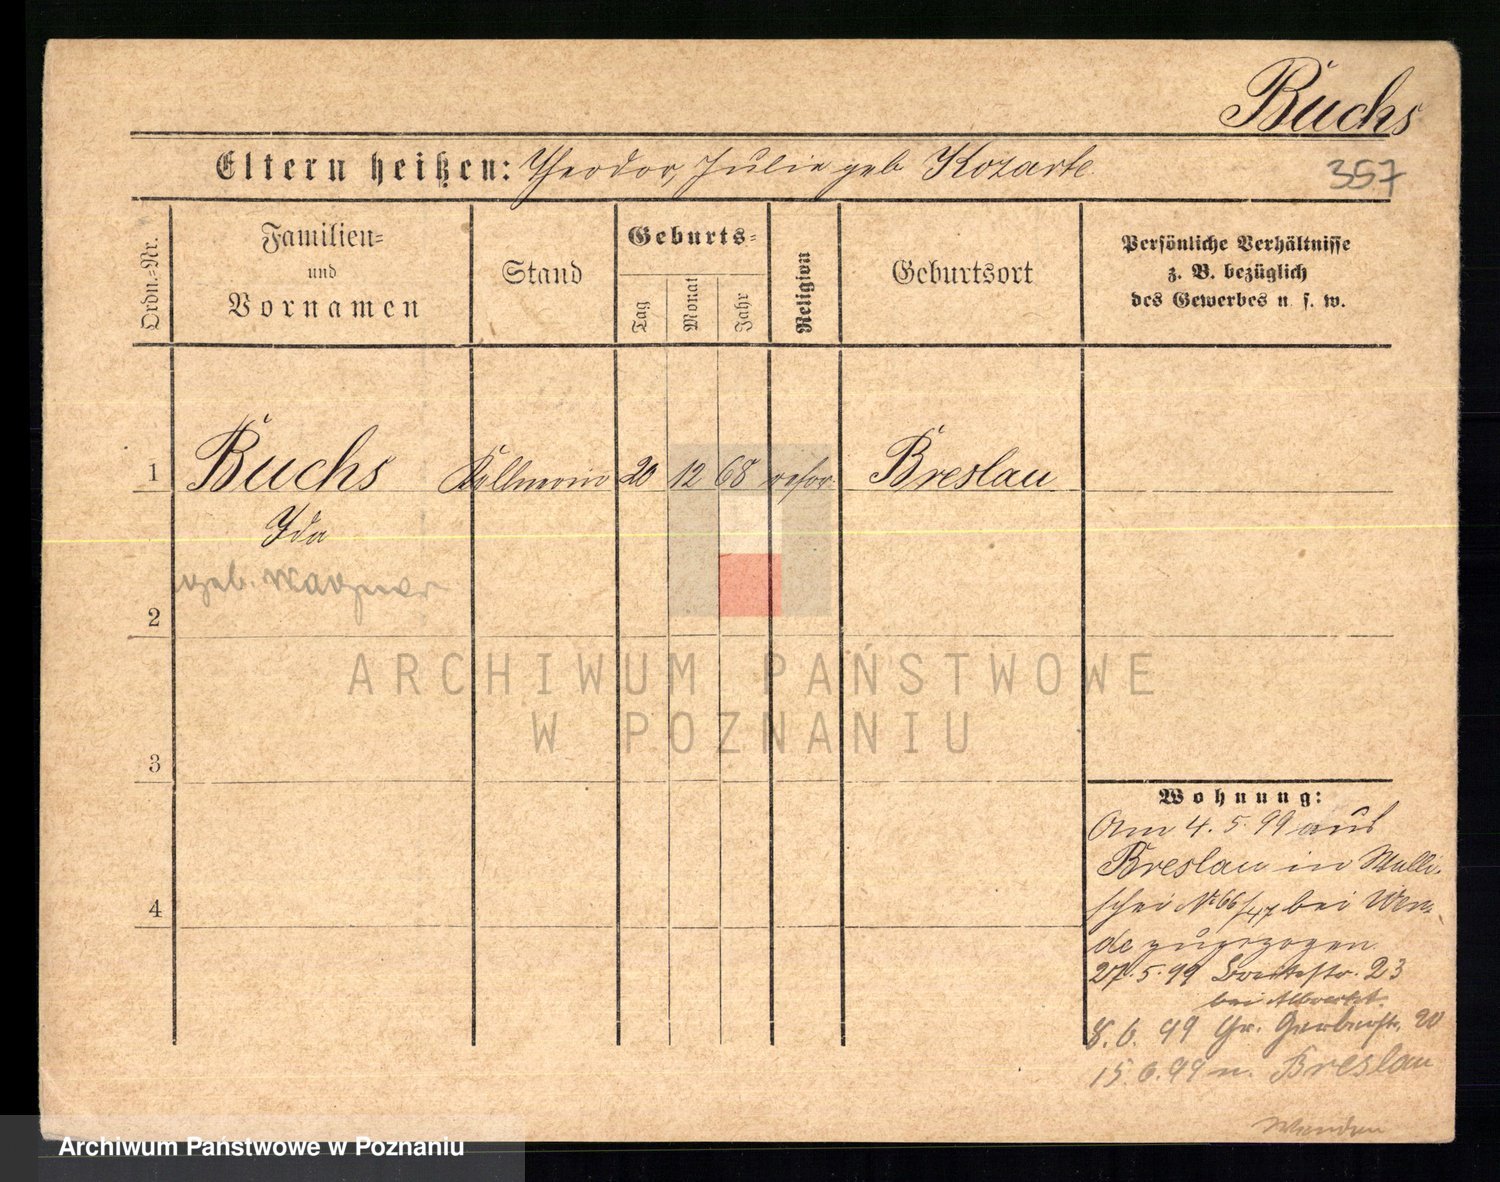 Buchs
Eltern heißen: Theodor, Julie geb Kozarte
357
Ordn.-Nr.
Familien-
und
Vornamen
Stand
Geburts-
Tag
Monat
Jahr
Religion
Geburtsort
Persönliche Verhältnisse
z. B. bezüglich
des Gewerbes u. s. w.
1
Buchs Kellnerin 20 12 68 refor. Breslau
Ida
geb. Wagner
2
ARCHIWUM PAŃSTWOWE
W POZNANIU
3
Wohnung:
Am 4. 5. 99 aus
Breslau in Walli-
schei No 66/47 bei Wen-
de zugezogen.
4
27. 5. 99 Breitestr. 23
bei
8. 6. 99 Gr. Gerberstr. 20
15. 6. 99 n. Breslau
Archiwum Państwowe w Poznaniu